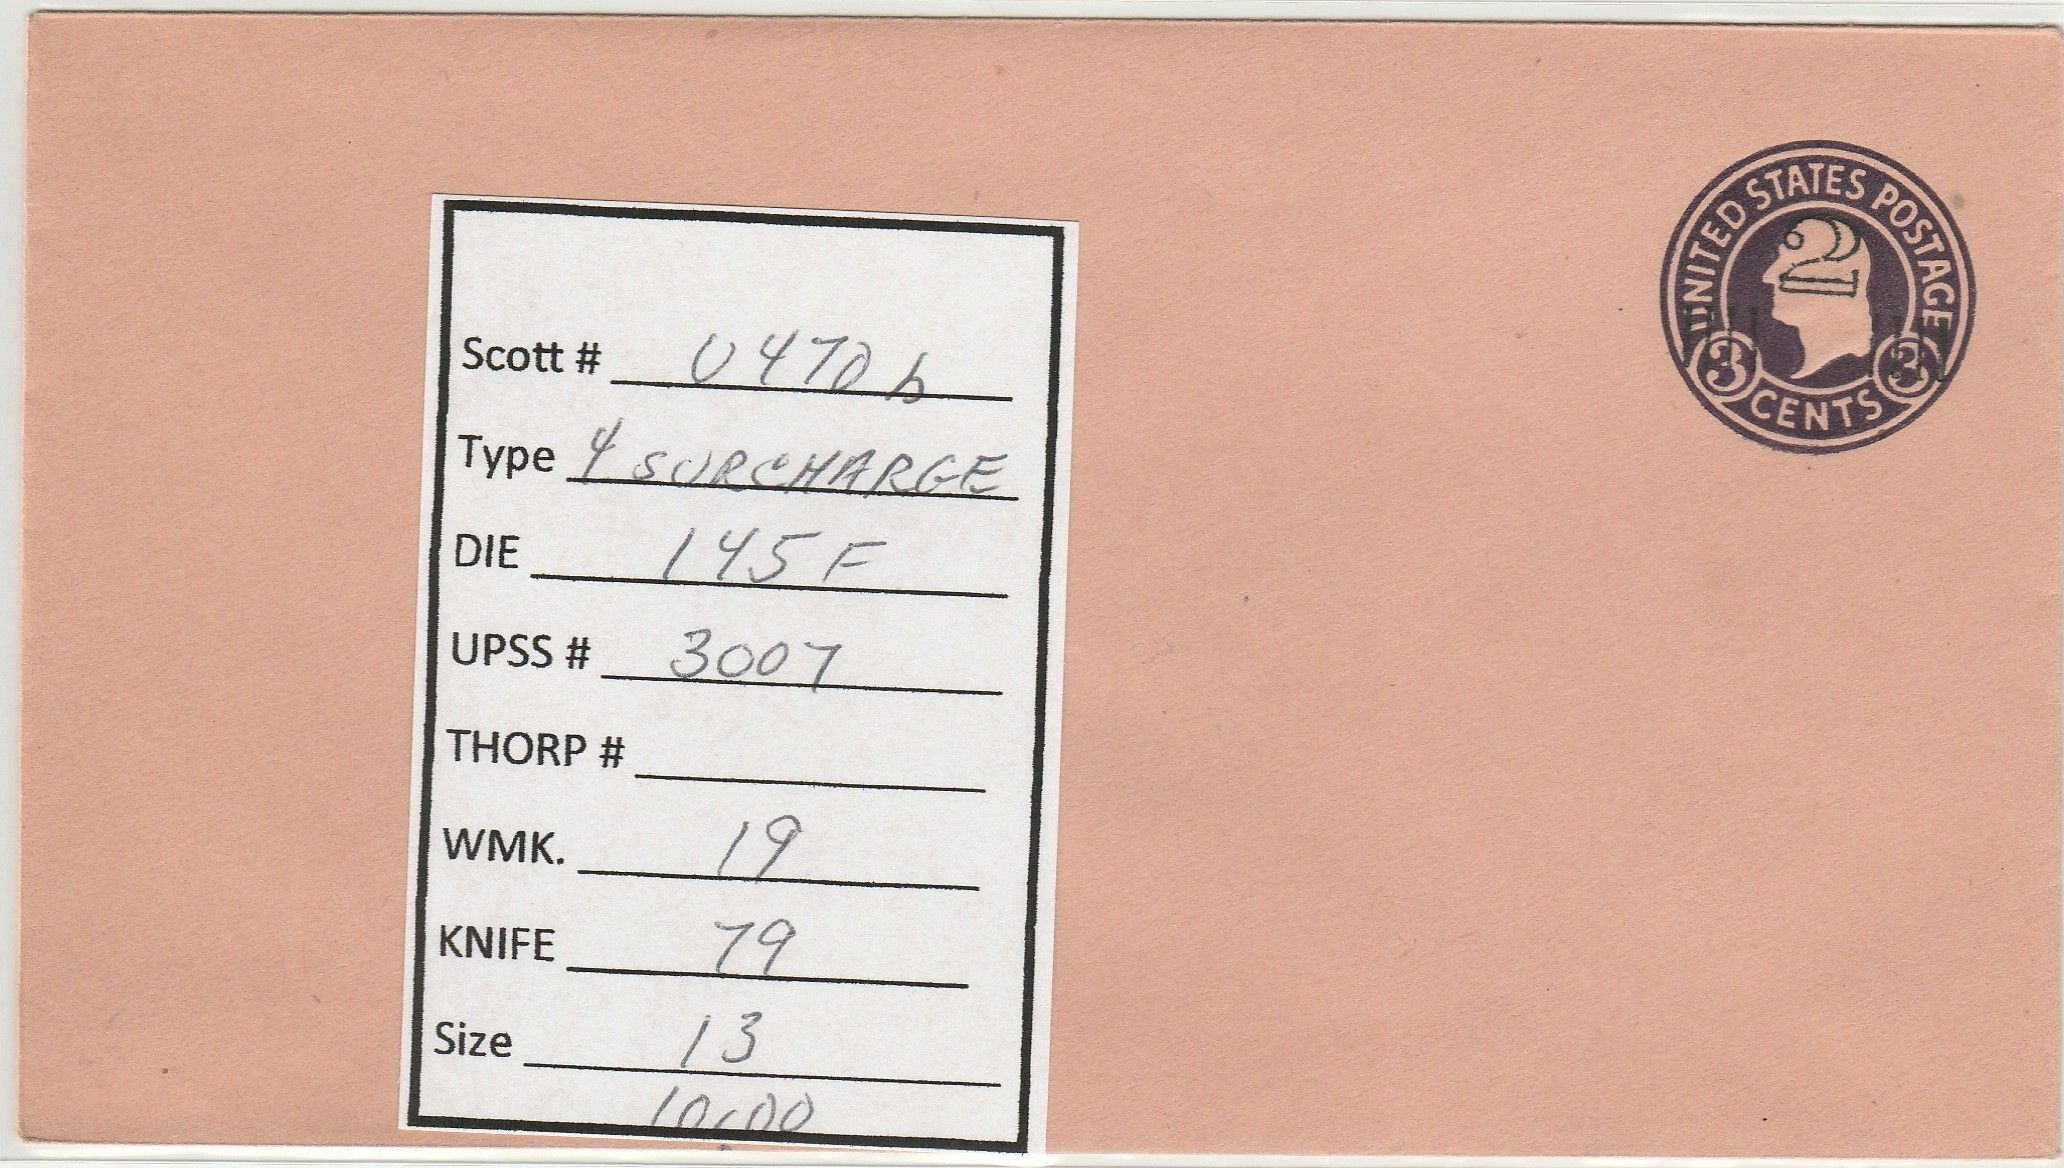 UNITED STATES POSTAGE
2
3 3
CENTS
Scott # U470b
Type 4 SURCHARGE
DIE 145F
UPSS # 3007
THORP #
WMK. 19
KNIFE 79
Size 13
10.00